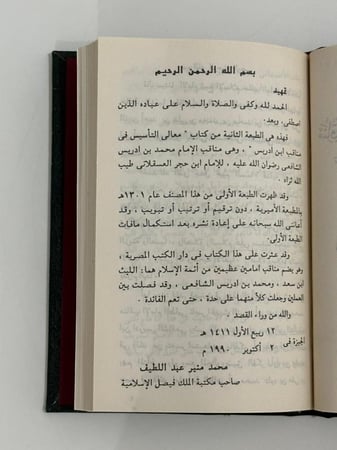 بسم الله الرحمن الرحيم
تمهيد
الحمد لله وكفى والصلاة والسلام على عباده الذين
اصطفى، وبعد.
فهذه هى الطبعة الثانية من كتاب " معالى التأسيس فى
مناقب ابن ادريس " ، وهى مناقب الإمام محمد بن ادريس
الشافعى رضوان الله عليه ، للإمام ابن حجر العسقلانى طيب
الله ثراه .
وقد ظهرت الطبعة الأولى من هذا المصنف عام ١٣٠١هـ
بالطبعة الأميرية ، دون ترقيم أو ترتيب أو تبويب ، وقد
أعاننى الله سبحانه على إعادة نشره بعد استكمال مافات
الطبعة الأولى.
وقد عثرت على هذا الكتاب فى دار الكتب المصرية ،
وهو يضم مناقب امامين عظيمين من أئمة الإسلام هما: الليث
ابن سعد ، ومحمد بن ادريس الشافعى ، وقد فصلت بين
العملين وجعلت كلاً منهما على حدة ، حتى تعم الفائدة .
والله من وراء القصد .
الجيزة فى ١٢ ربيع الأول ١٤١١ هـ
٢ أكتوبر ١٩٩٠ م
محمد منير عبد اللطيف
صاحب مكتبة الملك فيصل الإسلامية